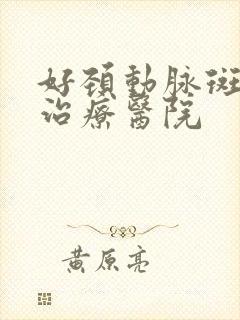 好頚動脉斑
治療醫院
黄原亮